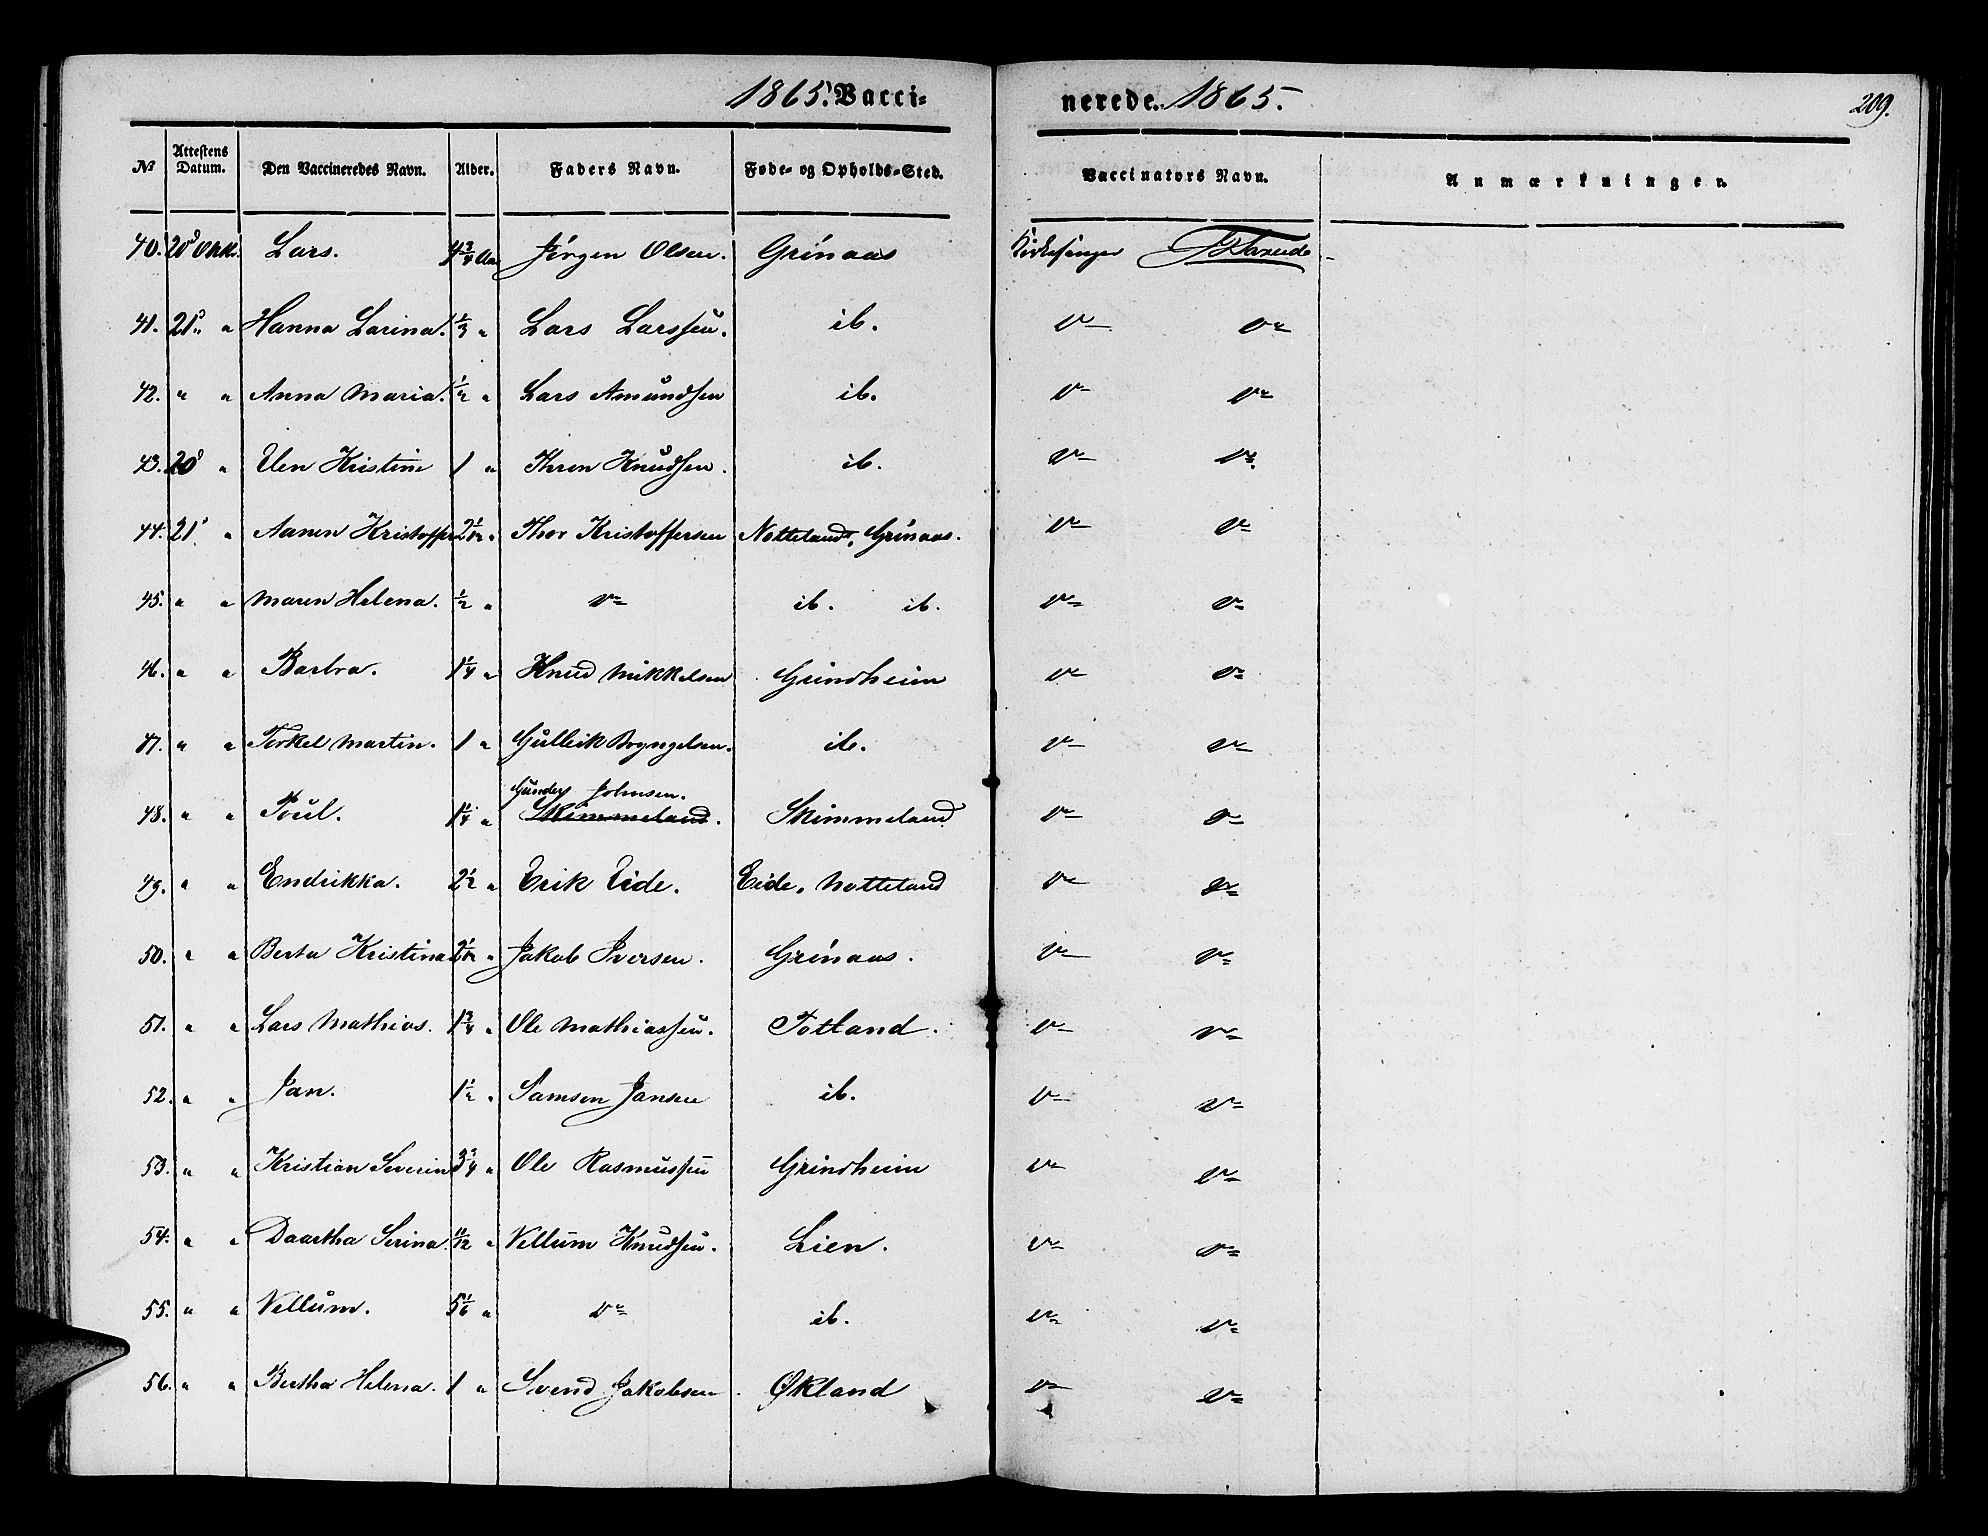 1865. Vacci-
nerede. 1865.
209.
No Attestens Datum. Den Vaccineredes Navn. Alder. Faders Navn. Føde- og Opholds-Sted. Vaccinators Navn. Anmærkninger.
40. 20d Oktb. Lars. 4 3/4 Aar Jörgen Olsen. Grinaas Kirkesanger
41. 21d " Hanna Larina. 1/3 " Lars Larssen. ib. d– d–
42. " " Anna Maria. 1/2 " Lars Amundsen ib. d– d–
43. 20d " Elen Kristine 1 " Iven Knudsen. ib. d– d–
44. 21d " Aanen Kristoffer 2 1/2 " Thor Kristoffersen Notteland, Grinaas. d– d–
45. " " Maren Helena. 1/2 " d– ib. ib. d– d–
46. " " Barbra. 1 1/4 " Knud Mikkelsen Grindheim d– d–
47. " " Torkel Martin. 1 " Gulleik Bryngelsen. ib. d– d–
48. " " Poul. 1 1/4 " Gunder Johnsen. Skimmeland. Skimmeland d– d–
49. " " Endrikka. 2 1/2 " Erik Eide. Eide, Notteland d– d–
50. " " Berta Kristina 2 1/2 " Jakob Iversen. Grinaas. d– d–
51. " " Lars Mathias. 1 3/4 " Ole Mathiassen. Totland. d– d–
52. " " Jan. 1 1/2 " Samson Jansen ib. d– d–
53. " " Kristian Severin 3 3/4 " Ole Rasmussen Grindheim d– d–
54. " " Daartha Serina. 11/12 " Vellum Knudsen. Lien. d– d–
55. " " Vellum. 5 1/6 " d– ib. d– d–
56. " " Bertha Helena. 1 " Svend Jakobsen. Økland d– d–